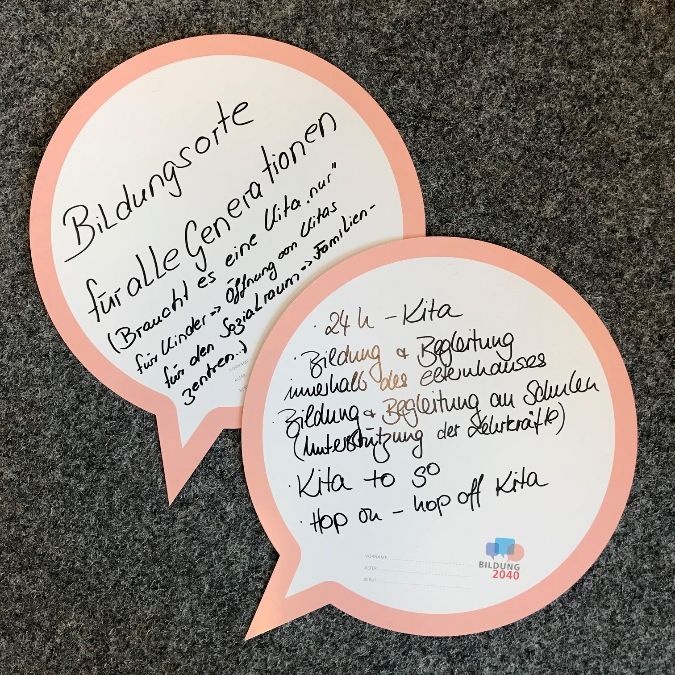 Bildungsorte
für alle Generationen
(Braucht es eine Kita „nur“
für Kinder => Öffnung von Kitas
für den Sozialraum => Familien-
zentren..)
· 24 h - Kita
· Bildung & Begleitung
innerhalb des Elternhauses
· Bildung & Begleitung an Schulen
(Unterstützung der Lehrkräfte)
· Kita to go
· Hop on - hop off Kita
VORNAME:
ALTER:
BERUF:
BILDUNG
2040